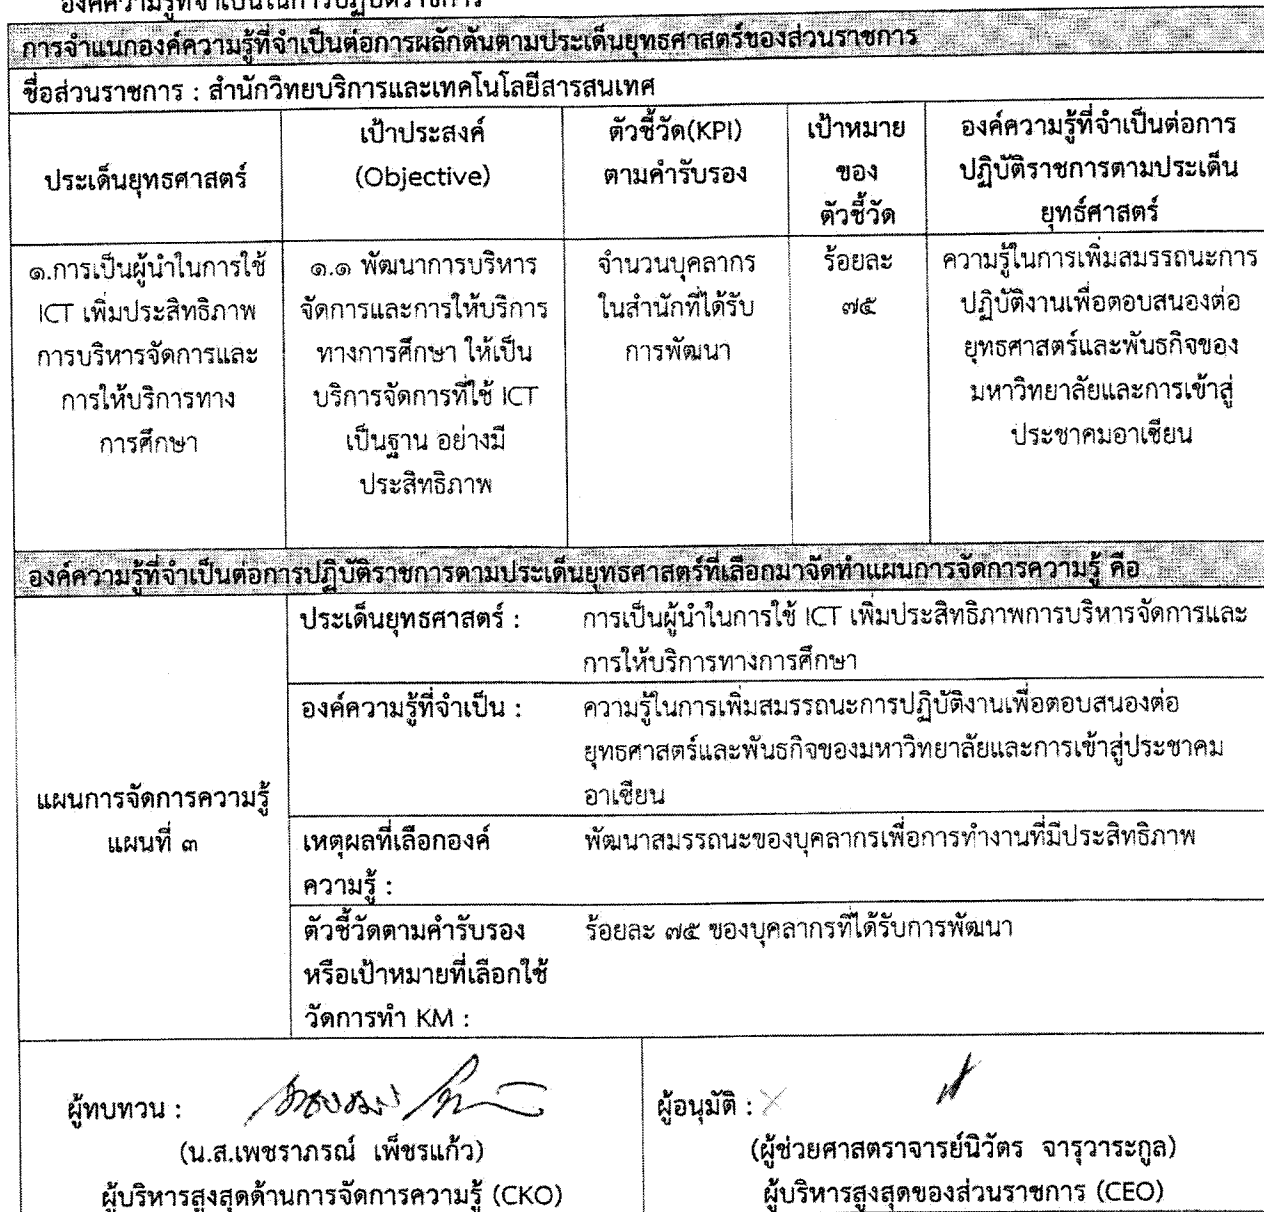 องค์ความรู้ที่จำเป็นในการปฏิบัติราชการ
การจำแนกองค์ความรู้ที่จำเป็นต่อการผลักดันตามประเด็นยุทธศาสตร์ของส่วนราชการ
ชื่อส่วนราชการ : สำนักวิทยบริการและเทคโนโลยีสารสนเทศ
ประเด็นยุทธศาสตร์
เป้าประสงค์
(Objective)
ตัวชี้วัด(KPI)
ตามคำรับรอง
เป้าหมาย
ของ
ตัวชี้วัด
องค์ความรู้ที่จำเป็นต่อการ
ปฏิบัติราชการตามประเด็น
ยุทธ์ศาสตร์
๑.การเป็นผู้นำในการใช้
ICT เพิ่มประสิทธิภาพ
การบริหารจัดการและ
การให้บริการทาง
การศึกษา
๑.๑ พัฒนาการบริหาร
จัดการและการให้บริการ
ทางการศึกษา ให้เป็น
บริการจัดการที่ใช้ ICT
เป็นฐาน อย่างมี
ประสิทธิภาพ
จำนวนบุคลากร
ในสำนักที่ได้รับ
การพัฒนา
ร้อยละ
๗๕
ความรู้ในการเพิ่มสมรรถนะการ
ปฏิบัติงานเพื่อตอบสนองต่อ
ยุทธศาสตร์และพันธกิจของ
มหาวิทยาลัยและการเข้าสู่
ประชาคมอาเซียน
องค์ความรู้ที่จำเป็นต่อการปฏิบัติราชการตามประเด็นยุทธศาสตร์ที่เลือกมาจัดทำแผนการจัดการความรู้ คือ
แผนการจัดการความรู้
แผนที่ ๓
ประเด็นยุทธศาสตร์ : การเป็นผู้นำในการใช้ ICT เพิ่มประสิทธิภาพการบริหารจัดการและ
การให้บริการทางการศึกษา
องค์ความรู้ที่จำเป็น : ความรู้ในการเพิ่มสมรรถนะการปฏิบัติงานเพื่อตอบสนองต่อ
ยุทธศาสตร์และพันธกิจของมหาวิทยาลัยและการเข้าสู่ประชาคม
อาเซียน
เหตุผลที่เลือกองค์ พัฒนาสมรรถนะของบุคลากรเพื่อการทำงานที่มีประสิทธิภาพ
ความรู้ :
ตัวชี้วัดตามคำรับรอง ร้อยละ ๗๕ ของบุคลากรที่ได้รับการพัฒนา
หรือเป้าหมายที่เลือกใช้
วัดการทำ KM :
ผู้ทบทวน :
(น.ส.เพชราภรณ์ เพ็ชรแก้ว)
ผู้บริหารสูงสุดด้านการจัดการความรู้ (CKO)
ผู้อนุมัติ :
(ผู้ช่วยศาสตราจารย์นิวัตร จารุวาระกูล)
ผู้บริหารสูงสุดของส่วนราชการ (CEO)